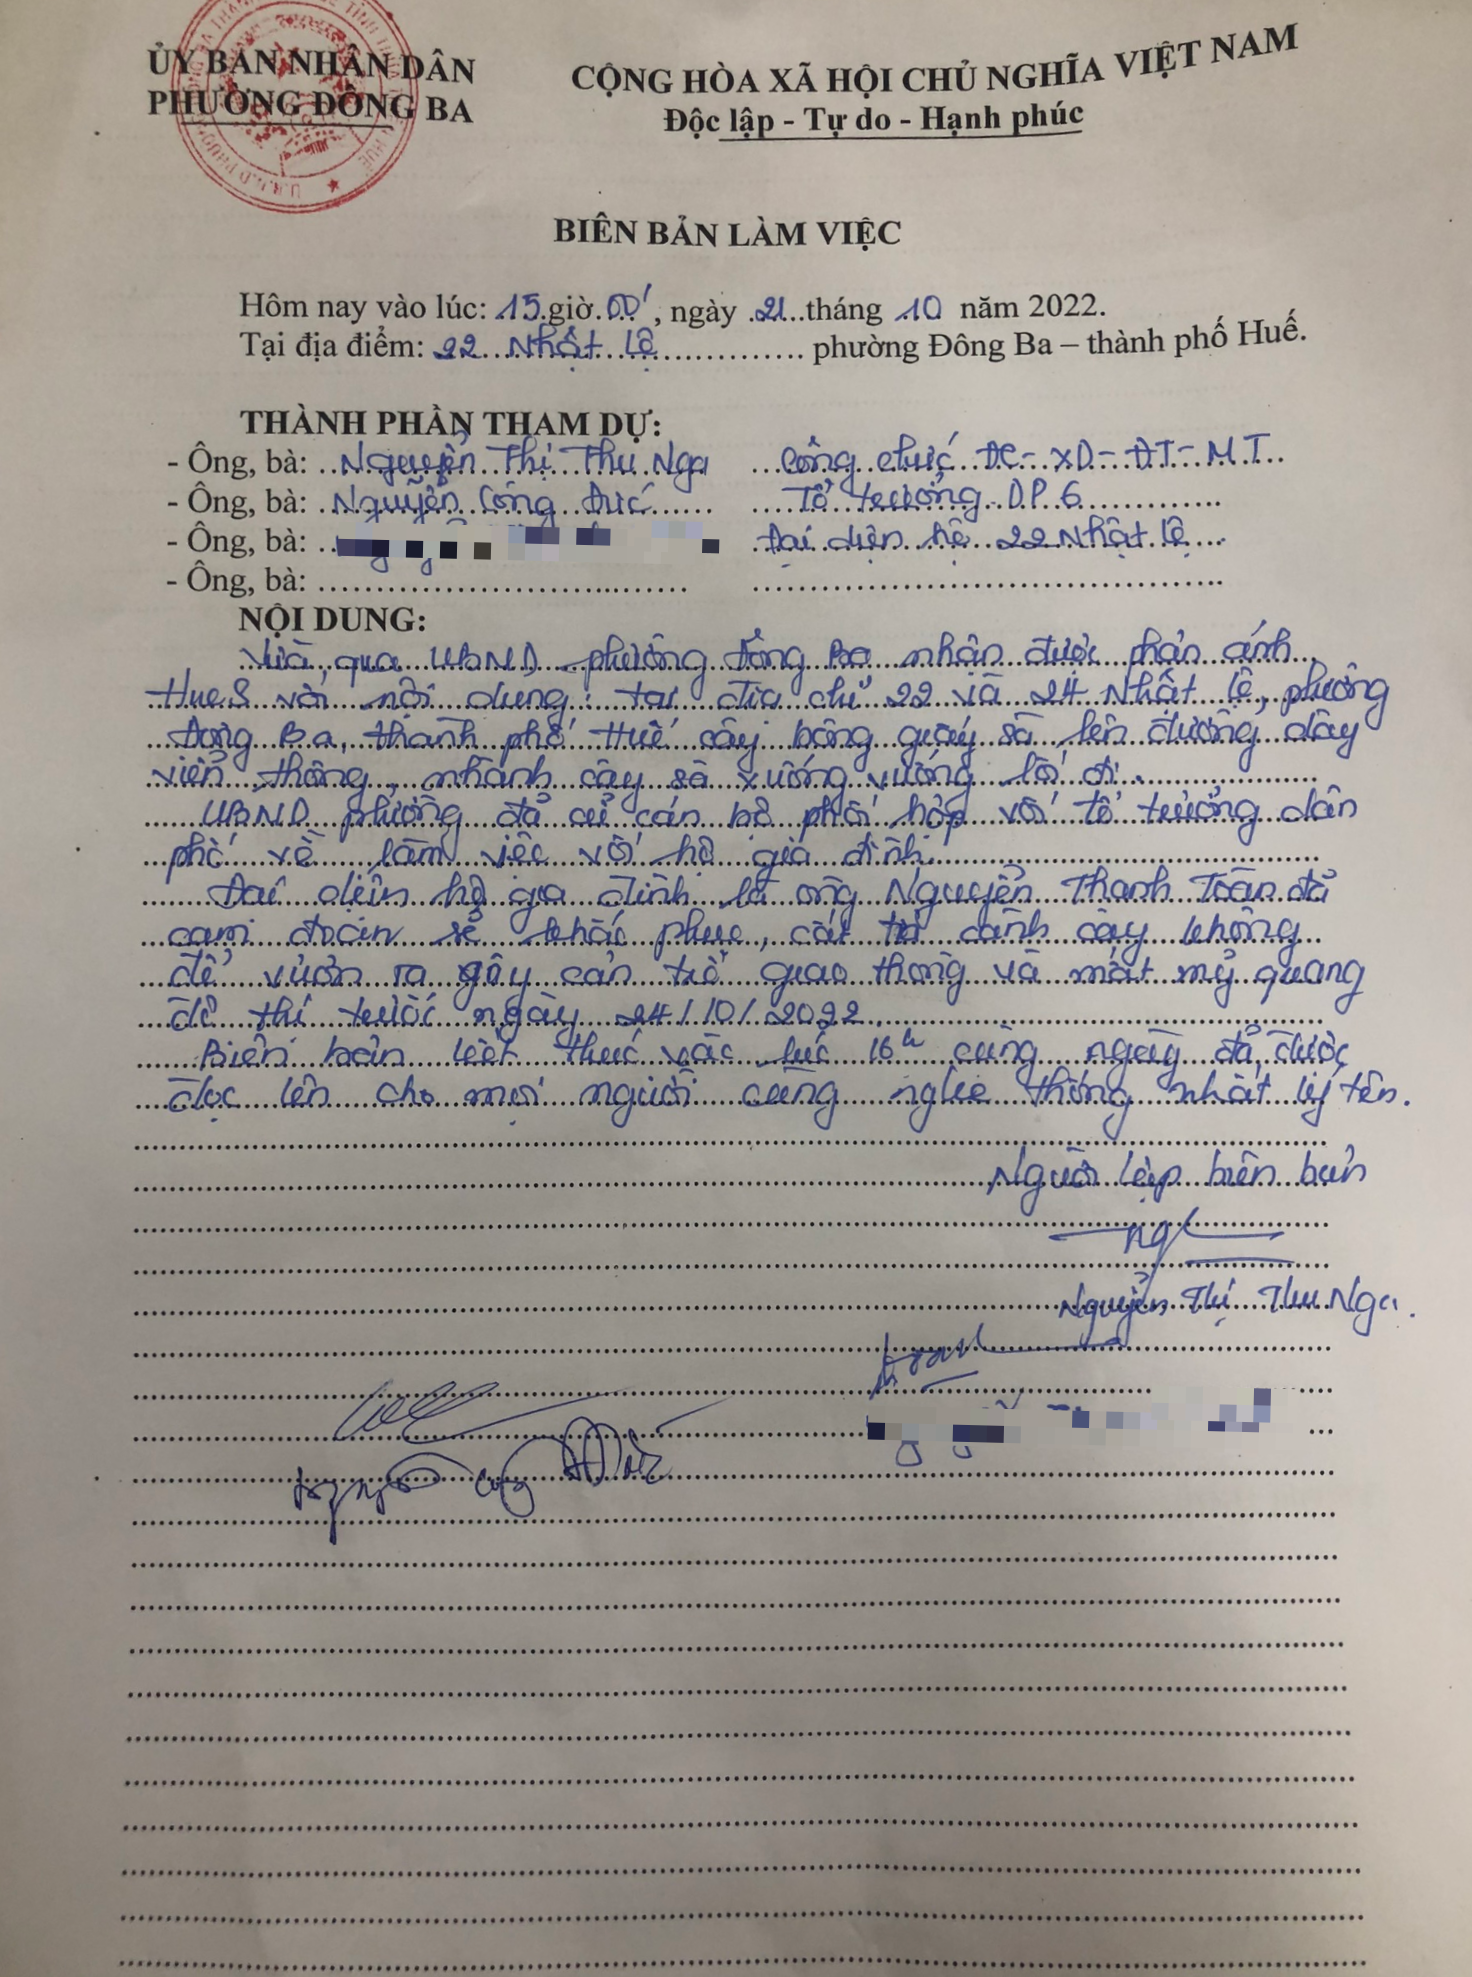 ỦY BAN NHÂN DÂN
PHƯỜNG ĐÔNG BA
CỘNG HÒA XÃ HỘI CHỦ NGHĨA VIỆT NAM
Độc lập - Tự do - Hạnh phúc
BIÊN BẢN LÀM VIỆC
Hôm nay vào lúc: 15 giờ 00', ngày 21 tháng 10 năm 2022.
Tại địa điểm: 22 Nhật Lệ phường Đông Ba – thành phố Huế.
THÀNH PHẦN THAM DỰ:
- Ông, bà: Nguyễn Thị Thu Nga Công chức ĐC - XD - ĐT - MT
- Ông, bà: Nguyễn Công Đức Tổ trưởng DP 6
- Ông, bà: Đại diện hộ 22 Nhật Lệ
- Ông, bà:
NỘI DUNG:
Vừa qua UBND phường Đông Ba nhận được phản ánh
HueS với nội dung: tại địa chỉ 22 và 24 Nhật Lệ, phường
Đông Ba, thành phố Huế cây bông giấy sà lên đường dây
viễn thông, nhành cây sà xuống vướng lối đi.
UBND phường đã cử cán bộ phối hợp với tổ trưởng dân
phố về làm việc với hộ gia đình
Đại diện hộ gia đình là ông Nguyễn Thanh Toản đã
cam đoan sẽ khắc phục, cắt tỉa cành cây không
để vươn ra gây cản trở giao thông và mất mỹ quang
đô thị trước ngày 24/10/2022
Biên bản kết thúc vào lúc 16h cùng ngày đã được
đọc lên cho mọi người cùng nghe thống nhất ký tên.
Người lập biên bản
Nguyễn Thị Thu Nga.
Nguyễn Công Đức